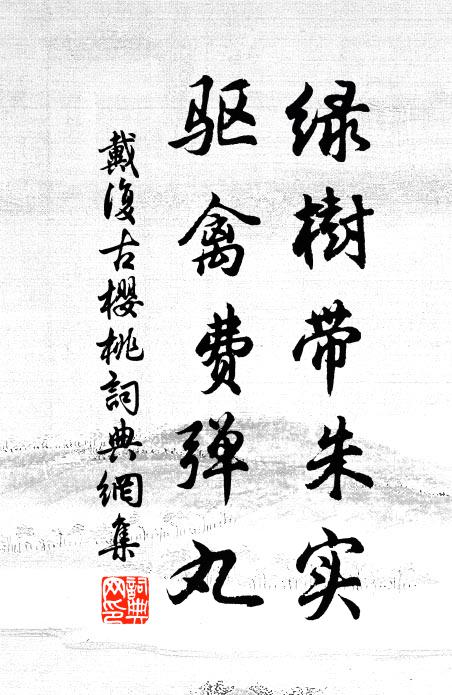 绿樹带朱实
驱禽费弹丸
戴復古櫻桃詞典網集
詞典网印